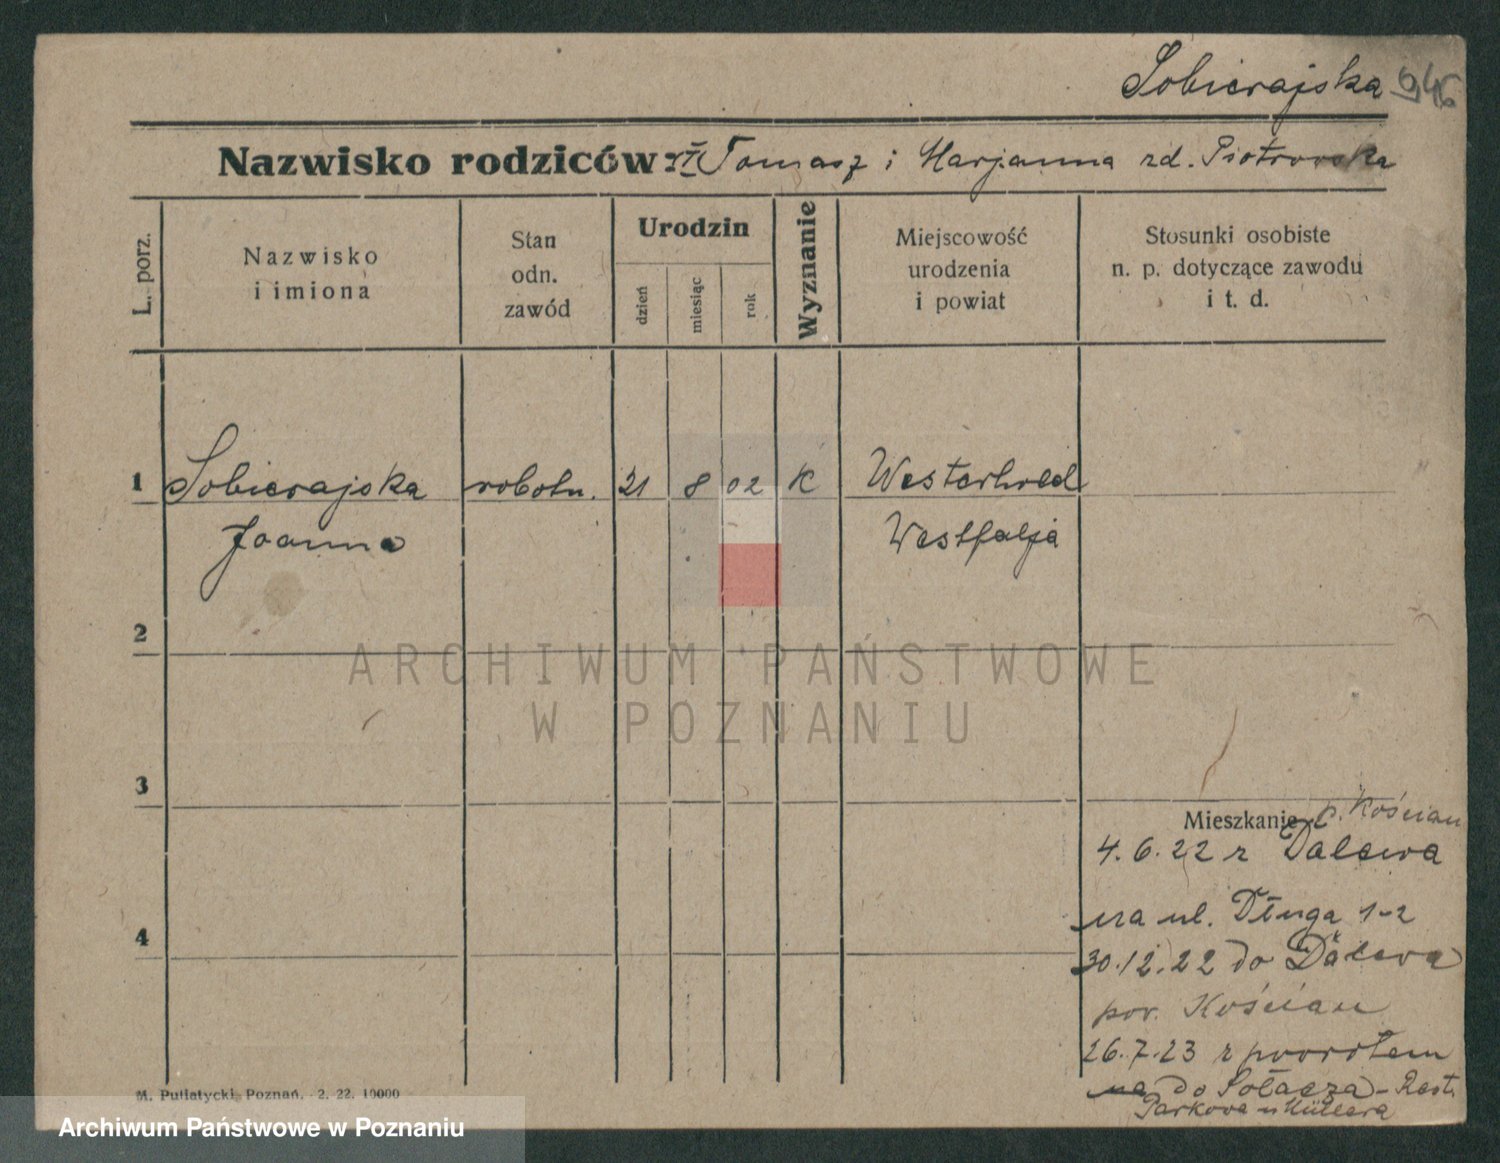 Sobierajska 946
Nazwisko rodziców: Tomasz i Marjanna zd. Piotrowska
L. porz.
Nazwisko
i imiona
Stan
odn.
zawód
Urodzin
dzień
miesiąc
rok
Wyznanie
Miejscowość
urodzenia
i powiat
Stosunki osobiste
n. p. dotyczące zawodu
i t. d.
1 Sobierajska robotn. 21 8 02 K Westerholt
Joanna Westfalja
2
ARCHIWUM PAŃSTWOWE
W POZNANIU
3
Mieszkanie p. Kościan
4.6.22 z Dalewa
na ul. Długa 1-2
4
30.12.22 do Dalewa
pow. Kościan
26.7.23 z powrotem
na do Sołacza - Rest.
Parkowa u Müllera
M. Putiatycki, Poznań. 2. 22. 10000
Archiwum Państwowe w Poznaniu